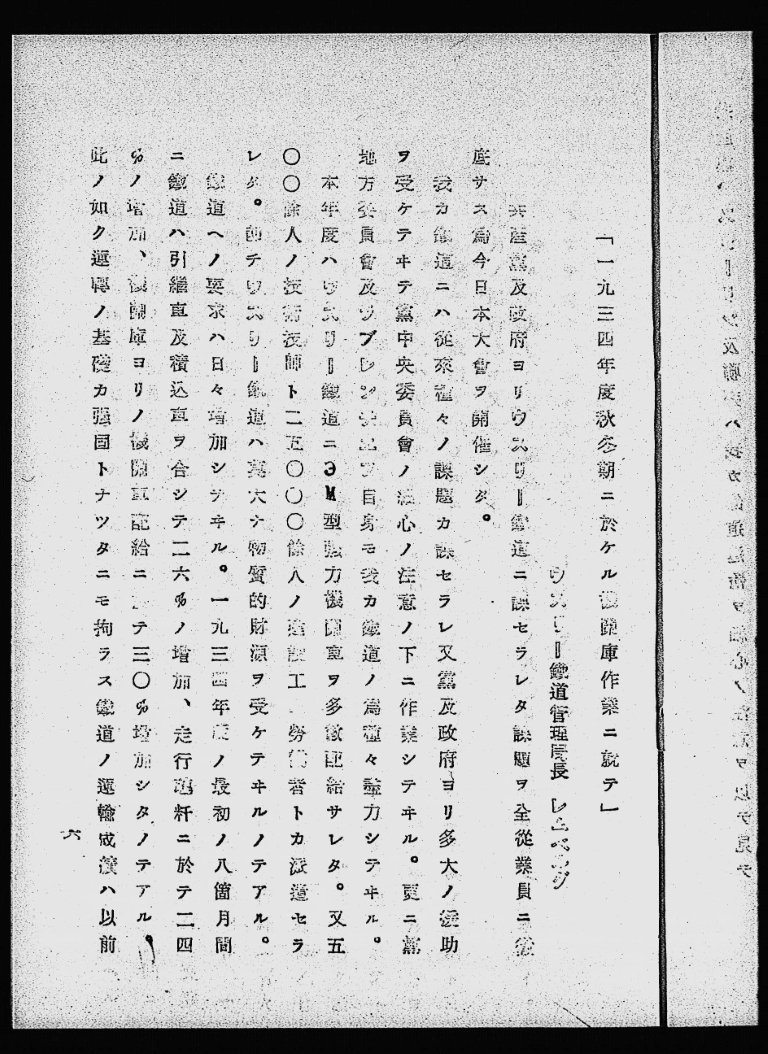 「一九三四年度秋冬期ニ於ケル機關庫作業ニ就テ」
ウスリー鐵道管理局長 レムベルグ
共産黨及政府ヨリウスリー鐵道ニ課セラレタ課題ヲ全從業員ニ徹
底サス爲今日本大會ヲ開催シタ。
我カ鐵道ニハ從來種々ノ課題カ課セラレ又黨及政府ヨリ多大ノ援助
ヲ受ケテヰテ黨中央委員會ノ細心ノ注意ノ下ニ作業シテヰル。更ニ黨
地方委員會及ラブレンチエフ自身モ我カ鐵道ノ爲種々盡力シテヰル。
本年度ハウスリー鐵道ニЭМ型强力機關車ヲ多數配給サレタ。又五
〇〇餘人ノ技術技師ト二五〇〇〇餘人ノ建設工 勞働者トカ派遣セラ
レタ。卽チウスリー鐵道ハ莫大ナ物質的財源ヲ受ケテヰルノテアル。
鐵道ヘノ要求ハ日々增加シテヰル。一九三四年度ノ最初ノ八箇月間
ニ鐵道ハ引繼車及積込車ヲ合シテ二六%ノ增加、走行瓲粁ニ於テ二四
%ノ增加、機關庫ヨリノ機關車配給ニ テ三〇%增加シタノテアル。
此ノ如ク運轉ノ基礎カ强固トナツタニモ拘ラス鐵道ノ運輸成績ハ以前
六